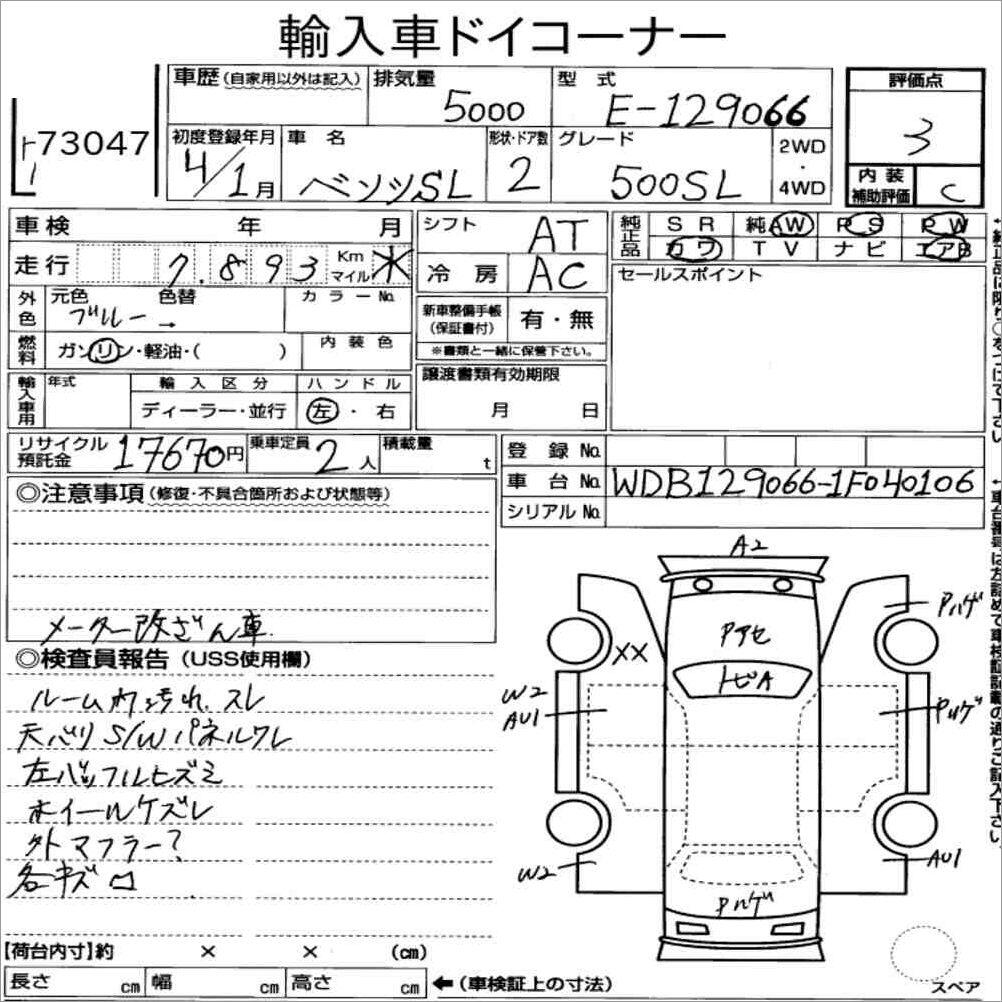 輸入車ドイコーナー
73047
車歴 (自家用以外は記入) 排気量 5000 型式 E-129066
評価点 3
初度登録年月 4/1月 車名 ベンツSL 形状・ドア数 2 グレード 500SL 2WD・4WD
内装補助評価 C
車検 年 月 シフト AT
純正品 SR 純AW PS PW
カワ TV ナビ エアB
走行 7.893 Km マイル 冷房 AC
セールスポイント
外色 元色 ブルー → 色替 カラーNo.
新車整備手帳(保証書付) 有・無
※書類と一緒に保管下さい。
燃料 ガソリン・軽油・( ) 内装色
輸入車用 年式 輸入区分 ディーラー・並行 ハンドル 左・右
譲渡書類有効期限 月 日
リサイクル預託金 17670円 乗車定員 2人 積載量 t
登録No.
車台No. WDB129066-1F040106
シリアルNo.
◎注意事項 (修復・不具合箇所および状態等)
メーター改ざん車
◎検査員報告 (USS使用欄)
天バリ S/Wパネルワレ
ホイールケズレ
外マフラー?
A2
Pハゲ
Pアセ
XX
トビA
W2
AU1
Pハゲ
W2
AU1
Pハゲ
スペア
【荷台内寸】約 × × (cm)
長さ cm 幅 cm 高さ cm ←(車検証上の寸法)
↑車台番号は左詰めで車検証記載の通りご記入下さい。